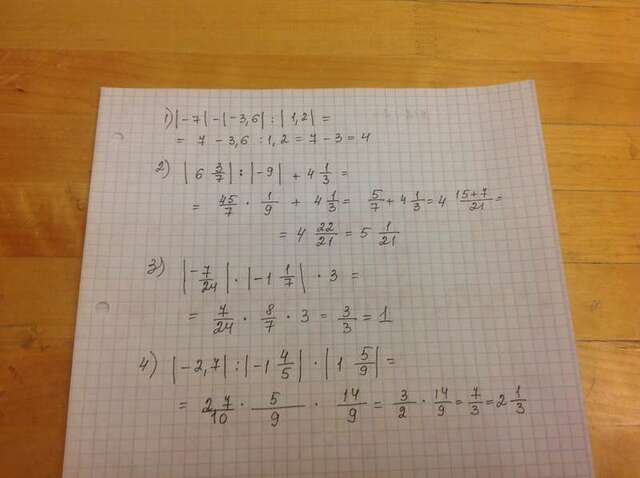 1) |-7| - |-3,6| : |1,2| =
= 7 - 3,6 : 1,2 = 7 - 3 = 4
2) |6 3/7| : |-9| + 4 1/3 =
= 45/7 · 1/9 + 4 1/3 = 5/7 + 4 1/3 = 4 (15+7)/21 =
= 4 22/21 = 5 1/21
3) |-7/24| · |-1 1/7| · 3 =
= 7/24 · 8/7 · 3 = 3/3 = 1
4) |-2,7| : |-1 4/5| · |1 5/9| =
= 2 7/10 · 5/9 · 14/9 = 3/2 · 14/9 = 7/3 = 2 1/3